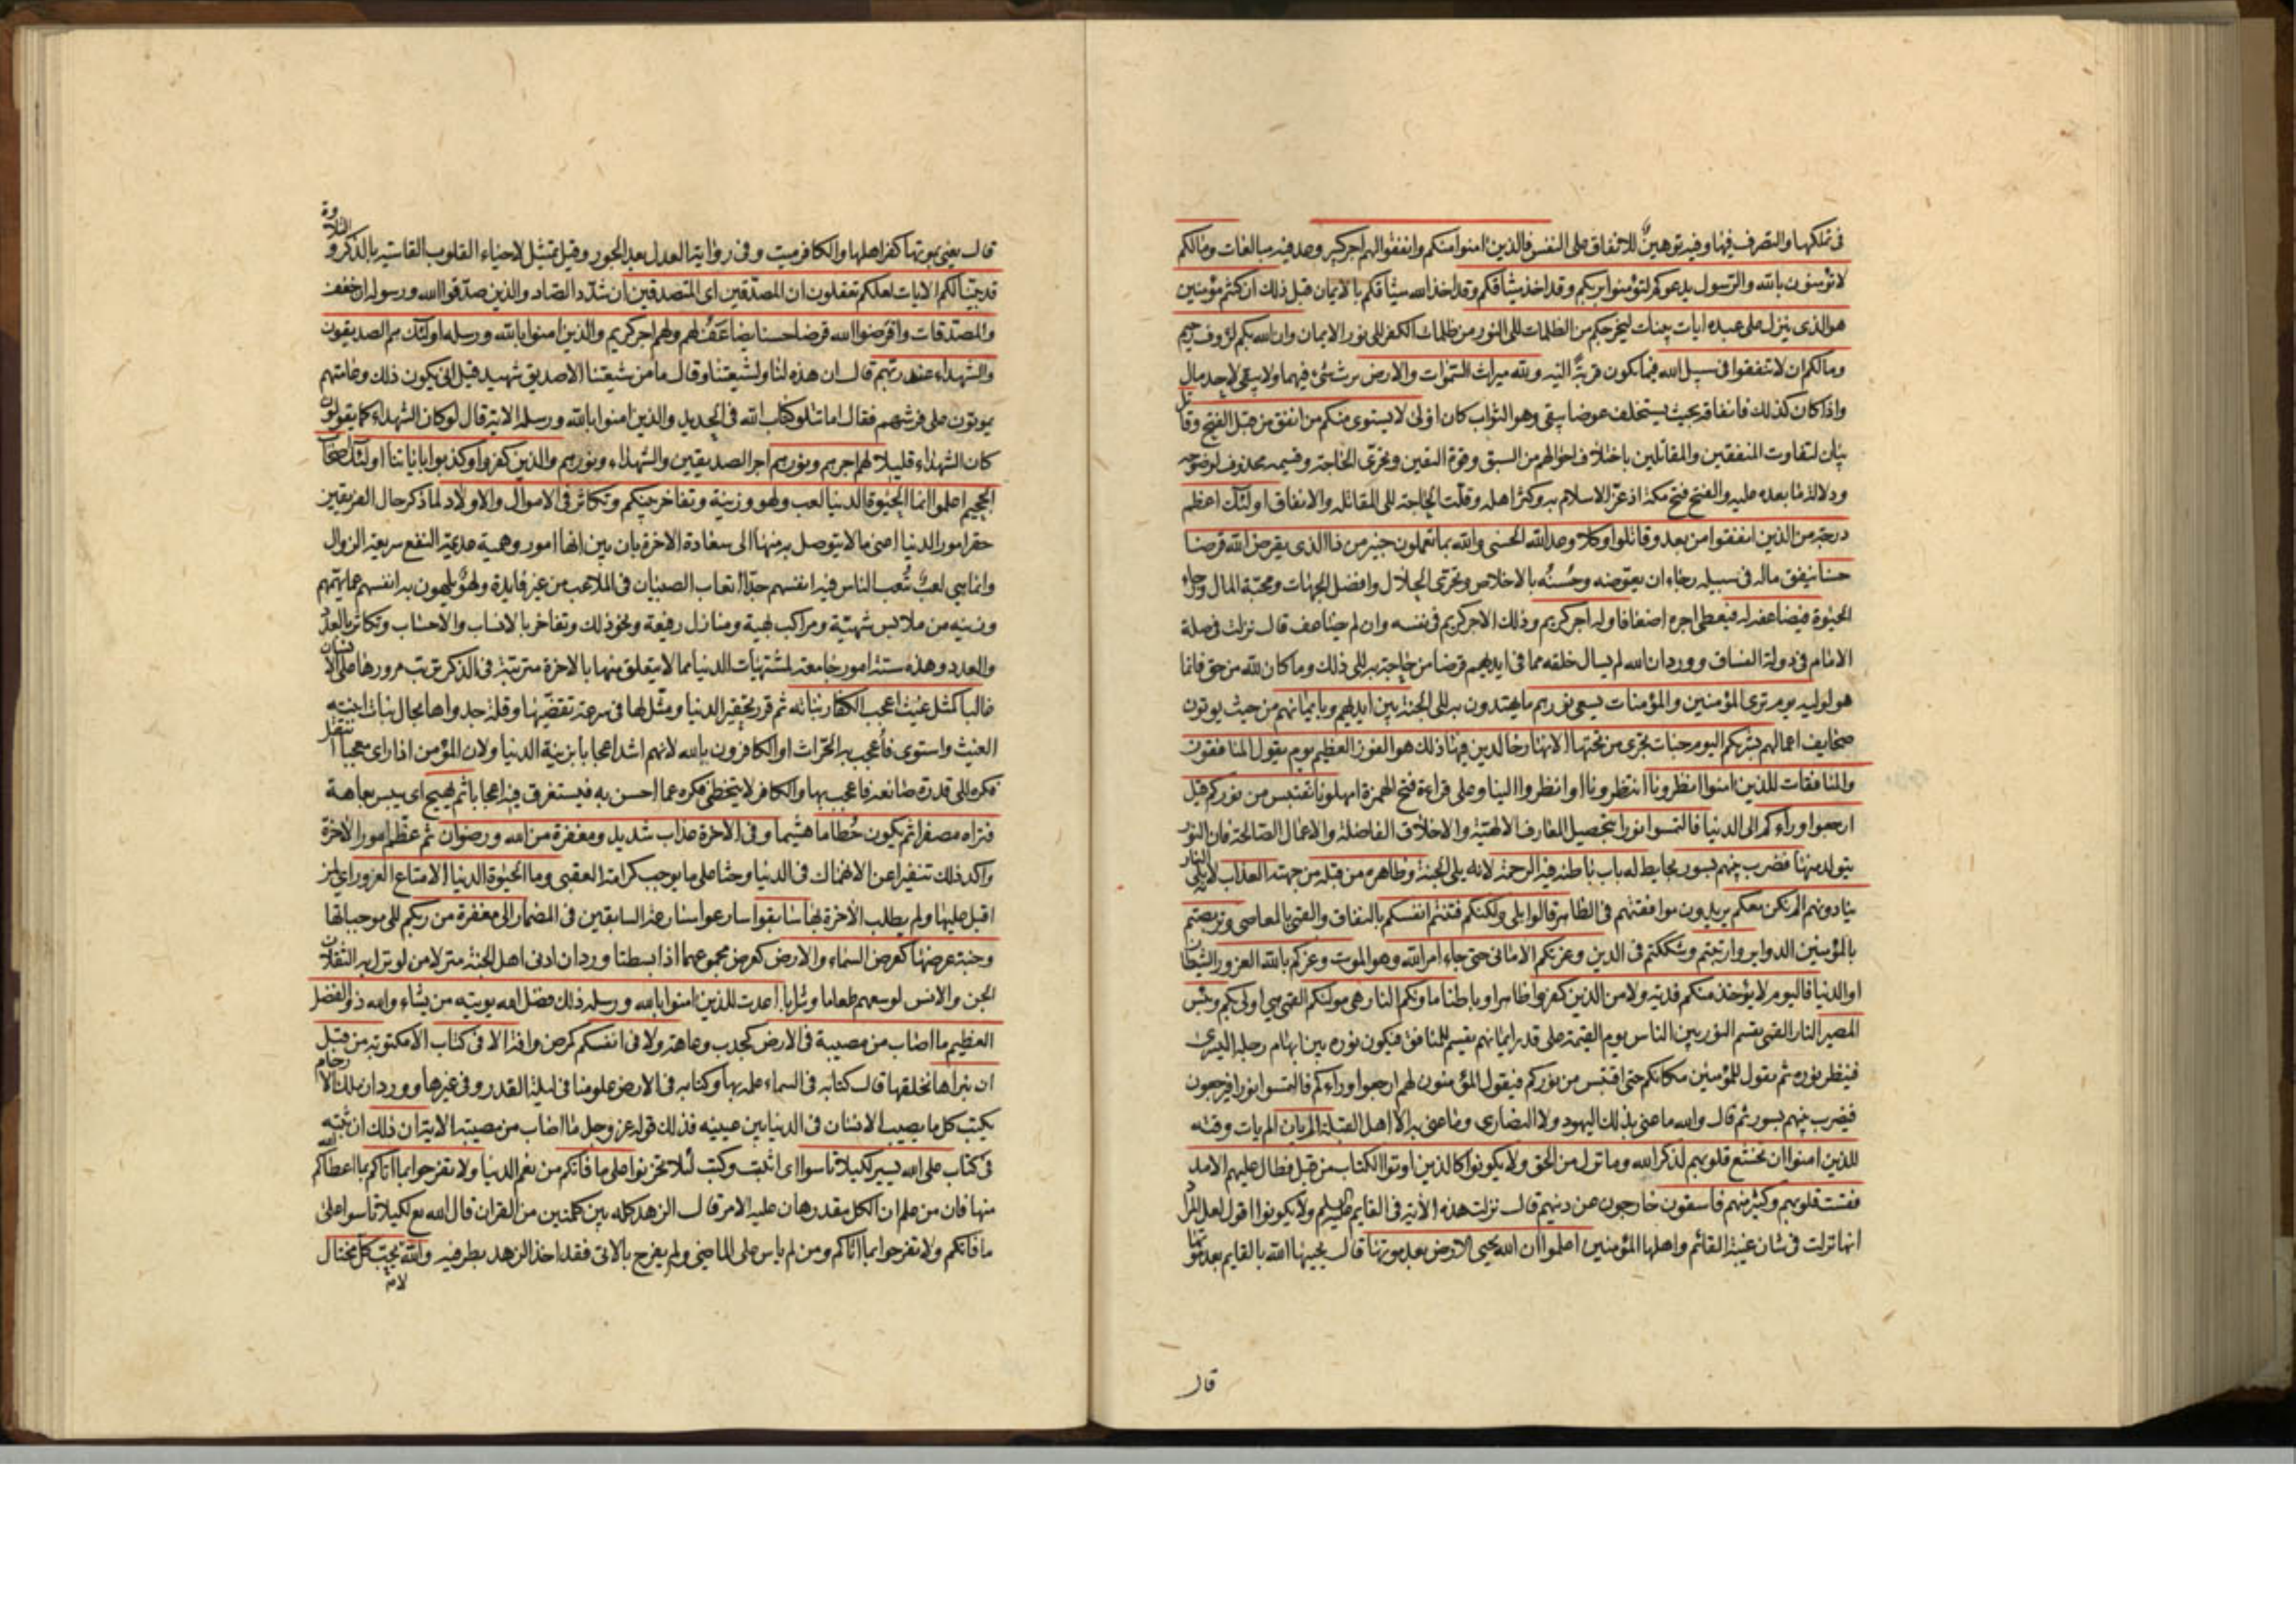 فى تملكها والتصرف فيها وفيه توهين للانفاق على النفس فالذين امنوا منكم وانفقوا لهم اجر كبير وعد فيه مبالغات ومالكم
لا تؤمنون بالله والرسول يدعوكم لتؤمنوا بربكم وقد اخذ ميثاقكم وقد اخذ الله ميثاقكم بالايمان قبل ذلك ان كنتم مؤمنين
هو الذى ينزل على عبده ايات بينات ليخرجكم من الظلمات الى النور من ظلمات الكفر الى نور الايمان وان الله بكم لرؤف رحيم
ومالكم ان لا تنفقوا فى سبيل الله فيما يكون قربة اليه ولله ميراث السموات والارض يرث كل شئ فيهما ولا يبقى لاحد مال
واذا كان كذلك فانفاقه بحيث يستخلف عوضا يبقى وهو الثواب كان اولى لا يستوى منكم من انفق من قبل الفتح وقاتل
بيان لتفاوت المنفقين والمقاتلين باختلاف احوالهم من السبق وقوة اليقين وتحرى الحاجة وقسيمه محذوف لوضوحه
ودلالة ما بعده عليه والفتح فتح مكة اذ عز الاسلام به وكثر اهله وقلت الحاجة الى المقاتله والانفاق اولئك اعظم
درجة من الذين انفقوا من بعد وقاتلوا وكلا وعد الله الحسنى والله بما تعملون خبير من ذا الذى يقرض الله قرضا
حسنا ينفق ماله فى سبيله رجاء ان يعوضه وحسنه بالاخلاص وتحرى الحلال وافضل الجهات ومحبة المال ورجاء
الحيوة فيضاعفه له فيعطى اجره اضعافا وله اجر كريم وذلك الاجر كريم فى نفسه وان لم يضاعف قال نزلت فى صلة
الامام فى دولة الفساق وورد ان الله لم يسال خلقه مما فى ايديهم قرضا من حاجة به الى ذلك وما كان لله من حق فانما
هو لوليه يوم ترى المؤمنين والمؤمنات يسعى نورهم ما يهتدون به الى الجنة بين ايديهم وبايمانهم من حيث يوتون
صحايف اعمالهم بشريكم اليوم جنات تجرى من تحتها الانهار خالدين فيها ذلك هو الفوز العظيم يوم يقول المنافقون
والمنافقات للذين امنوا انظرونا انتظرونا او انظروا الينا وعلى قراءة فتح الهمزة امهلونا نقتبس من نوركم قيل
ارجعوا وراءكم الى الدنيا فالتمسوا نورا بتحصيل المعارف الالهية والاخلاق الفاضلة والاعمال الصالحة فان النور
يتولد منها فضرب بينهم بسور بحايط له باب باطنه فيه الرحمة لانه يلى الجنة وظاهره من قبله من جهته العذاب لانه يلى النار
ينادونهم الم نكن معكم يريدون موافقتهم فى الظاهر قالوا بلى ولكنكم فتنتم انفسكم بالنفاق والقمى بالمعاصى وتربصتم
بالمؤمنين الدواير وارتبتم وشككتم فى الدين وغرتكم الامانى حتى جاء امر الله وهو الموت وغركم بالله الغرور الشيطان
او الدنيا فاليوم لا يؤخذ منكم فدية ولا من الذين كفروا ظاهرا وباطنا ماويكم النار هى موليكم القمى هى اولى بكم وبئس
المصير النار القمى يقسم النور بين الناس يوم القيمة على قدر ايمانهم يقسم للمنافق فيكون نوره بين ابهام رجله اليسرى
فينظر نوره ثم يقول للمؤمنين مكانكم حتى اقتبس من نوركم فيقول المؤمنون لهم ارجعوا وراءكم فالتمسوا نورا فيرجعون
فيضرب بينهم بسور ثم قال والله ما عنى بذلك اليهود ولا النصارى وما عنى به الا اهل القبلة الم يان الم يات وقته
للذين امنوا ان تخشع قلوبهم لذكر الله وما نزل من الحق ولا يكونوا كالذين اوتوا الكتاب من قبل فطال عليهم الامد
فقست قلوبهم وكثير منهم فاسقون خارجون عن دينهم قال نزلت هذه الاية فى القايم عليه السلم ولا يكونوا اقول لعل المراد
انها نزلت فى شان غيبة القائم واهلها المؤمنين اعلموا ان الله يحيى الارض بعد موتها قال يحييها الله بالقايم بعد موتها
قال
قال يعنى بموتها كفر اهلها والكافر ميت وفى رواية العدل بعد الجور وقيل تمثيل لاحياء القلوب القاسية بالذكر والتلاوة
قد بينا لكم الايات لعلكم تعقلون ان المصدقين اى المتصدقين ان شدد الصاد والذين صدقوا الله ورسوله ان خفف
والمصدقات واقرضوا الله قرضا حسنا يضاعف لهم ولهم اجر كريم والذين امنوا بالله ورسله اولئك هم الصديقون
والشهداء عند ربهم قال ان هذه لنا ولشيعتنا وقال ما من شيعتنا الا صديق شهيد قيل انى يكون ذلك وعامتهم
يموتون على فرشهم فقال اما تتلو كتاب الله فى الحديد والذين امنوا بالله ورسله الاية قال لو كان الشهداء كما يقولون
كان الشهداء قليلا لهم اجرهم ونورهم اجر الصديقين والشهداء ونورهم والذين كفروا وكذبوا باياتنا اولئك اصحاب
الجحيم اعلموا انما الحيوة الدنيا لعب ولهو وزينة وتفاخر بينكم وتكاثر فى الاموال والاولاد لما ذكر حال الفريقين
حقر امور الدنيا اعنى ما لا يتوصل به منها الى سعادة الاخرة بان بين انها امور وهمية عديمة النفع سريعة الزوال
وانما هى لعب تعب الناس فيه انفسهم جدا اتعاب الصبيان فى الملاعب من غير فايدة ولهو يلهون به انفسهم عما يهمهم
وزينه من ملابس شهية ومراكب بهية ومنازل رفيعة ونحو ذلك وتفاخر بالانساب والاحساب وتكاثر بالعدد
والعدد وهذه ستة امور جامعة لمشتهيات الدنيا مما لا يتعلق منها بالاخرة مترتبة فى الذكر ترتب مرورها على الانسان
غالبا كمثل غيث اعجب الكفار نباته ثم قرر تحقير الدنيا ومثل لها فى سرعة تقضيها وقلة جدواها بحال نبات انبته
الغيث واستوى فاعجب به الحراث او الكافرون بالله لانهم اشد اعجابا بزينة الدنيا ولان المؤمن اذا راى معجبا انتقل
فكره الى قدرة صانعه فاعجب بها والكافر لا يتخطى فكره عما احسن به فيستغرق فيه اعجابا ثم يهيج اى ييبس بعاهة
فتراه مصفرا ثم يكون حطاما هشيما وفى الاخرة عذاب شديد ومغفرة من الله ورضوان ثم عظم امور الاخرة
واكد ذلك تنفيرا عن الانهماك فى الدنيا وحثا على ما يوجب كرامة العقبى وما الحيوة الدنيا الا متاع الغرور اى لمن
اقبل عليها ولم يطلب الاخرة بها سابقوا سارعوا مسارعة السابقين فى المضمار الى مغفرة من ربكم الى موجباتها
وجنة عرضها كعرض السماء والارض كعرض مجموعهما اذا بسطتا وورد ان ادنى اهل الجنة منزلا من لو نزل به الثقلان
الجن والانس لوسعهم طعاما وشرابا اعدت للذين امنوا بالله ورسله ذلك فضل الله يوتيه من يشاء والله ذو الفضل
العظيم ما اصاب من مصيبة فى الارض كجدب وعاهة ولا فى انفسكم كمرض وافة الا فى كتاب الا مكتوبة من قبل
ان نبراها نخلقها قال كتابه فى السماء علمه بها وكتابه فى الارض علومنا فى ليلة القدر وفى غيرها وورد ان ملك الارحام
يكتب كل ما يصيب الانسان فى الدنيا بين عينيه فذلك قوله عز وجل ما اصاب من مصيبة الاية ان ذلك ان ثبته
فى كتاب على الله يسير لكيلا تاسوا اى اثبت وكتب لئلا تحزنوا على ما فاتكم من نعم الدنيا ولا تفرحوا بما اتاكم بما اعطاكم الله
منها فان من علم ان الكل مقدر هان عليه الامر قال الزهد كله بين كلمتين من القران قال الله تع لكيلا تاسوا على
ما فاتكم ولا تفرحوا بما اتاكم ومن لم ياس على الماضى ولم يفرح بالاتى فقد اخذ الزهد بطرفيه والله لا يحب كل مختال